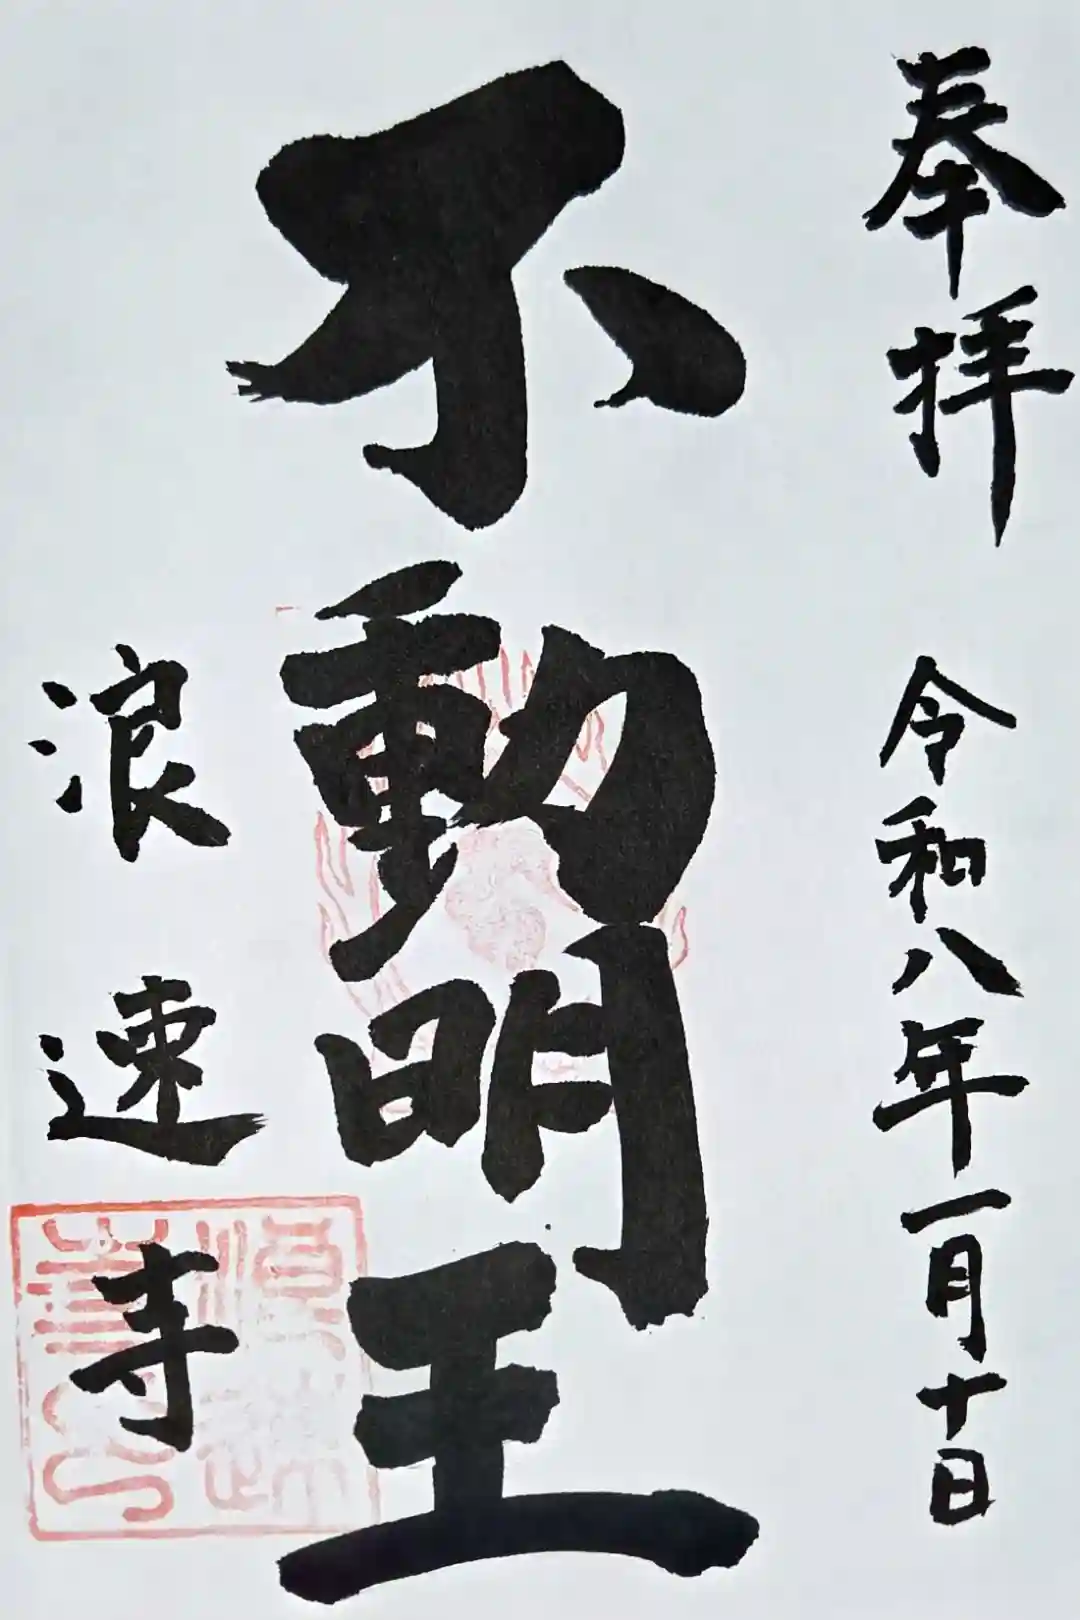 奉拝 令和八年一月十日
不動明王
浪速寺